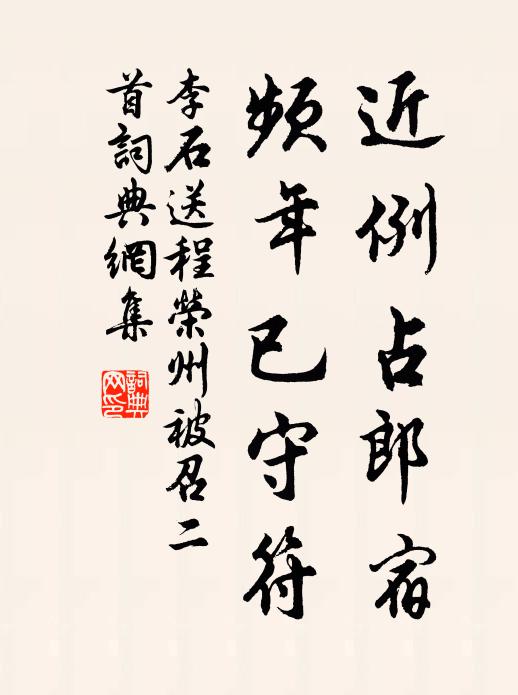 近例占郎宿
頻年已守符
李石送程榮州被召二
首詞典網集
詞典
网印